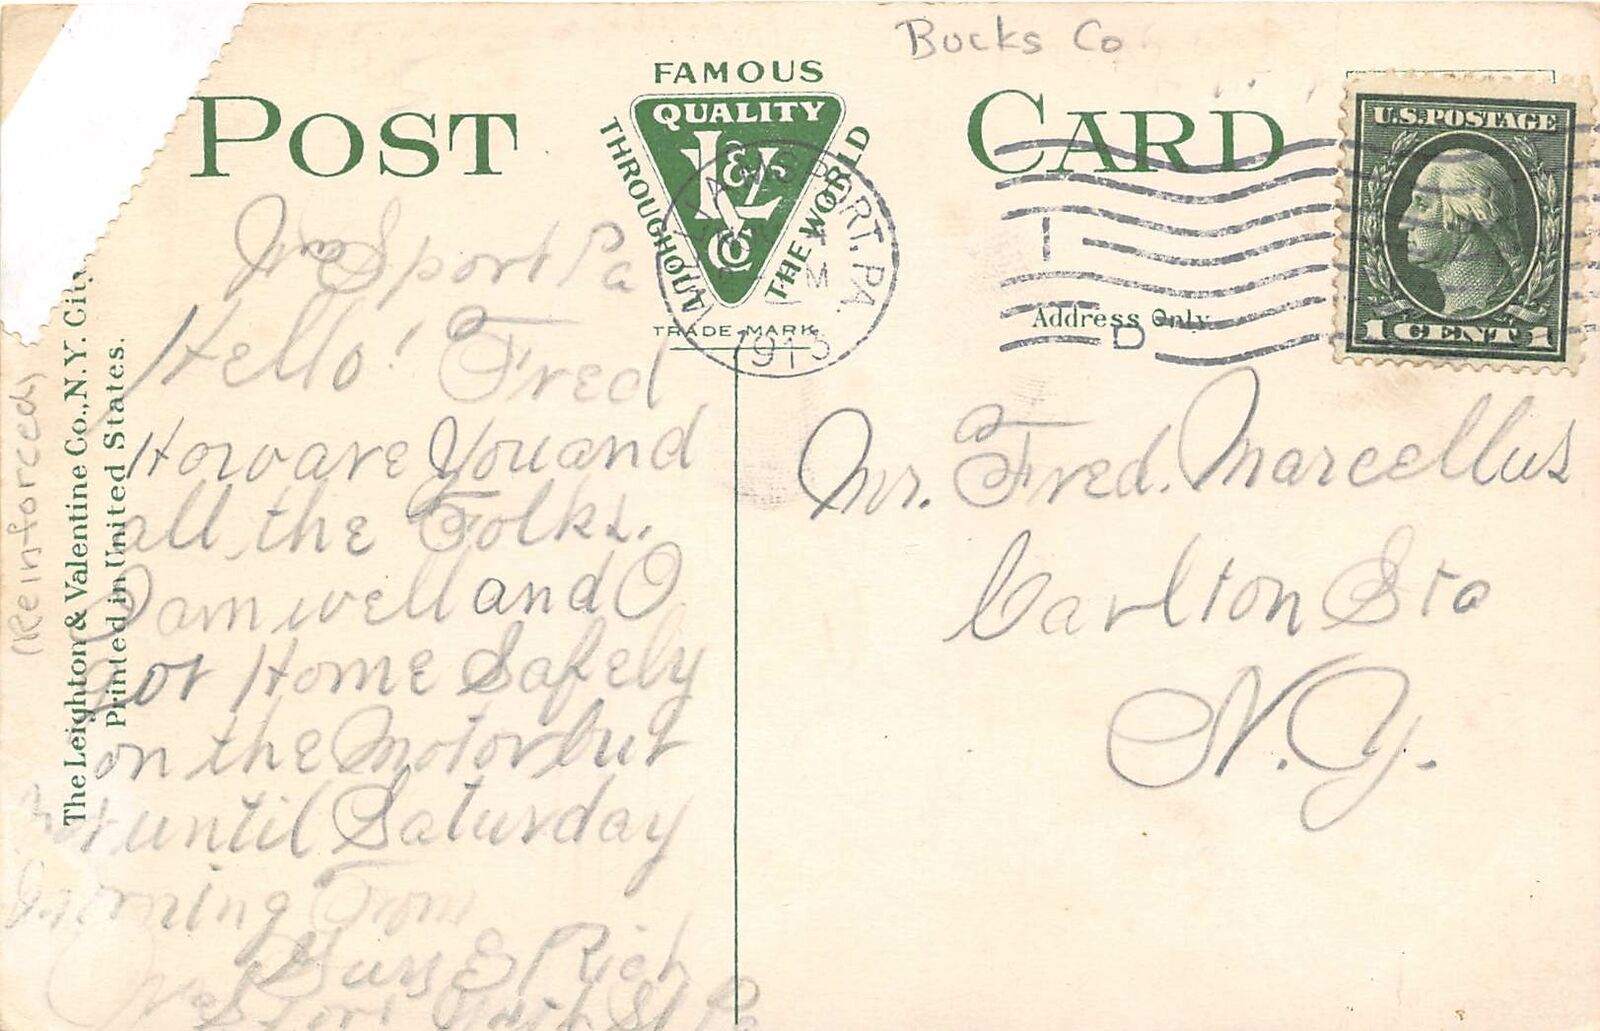 Bucks Co
POST CARD
FAMOUS
QUALITY
THROUGHOUT
THE WORLD
L&V Co
TRADE MARK
AMSPORT, PA.
M
1913
1
D
U.S. POSTAGE
1 CENT 1
Address Only
The Leighton & Valentine Co., N.Y. City
Printed in United States.
(Reinforced)
WmSport Pa
Hello! Fred
How are You and
all the Folks.
I am well and
Got Home Safely
on the Motor but
Not until Saturday
morning From
E Rich
St Pa
Mr. Fred. Marcellus
Carlton Sta
N.Y.